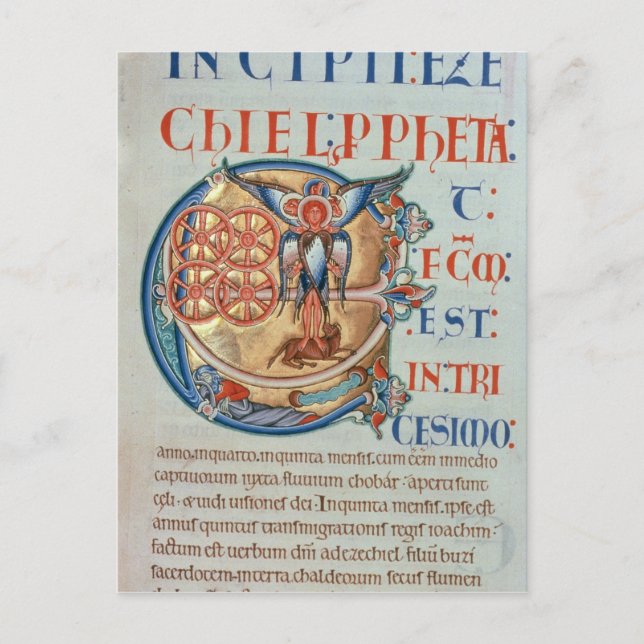 INCIPIT: EZE
ChIEL: PPhETA:
T:
FCM:
EST:
IN: TRI
CESIMO:
anno. in quarto. in quinta mensis. cum eem in medio
captiuorum iuxta fluuium chobar. aperti sunt
celi. & uidi uisiones dei. In quinta mensis. ipse est
annus quintus transmigrationis regis ioachim.
factum est uerbum dni ad ezechiel. filiu buzi
sacerdotem. in terra chaldeorum secus flumen